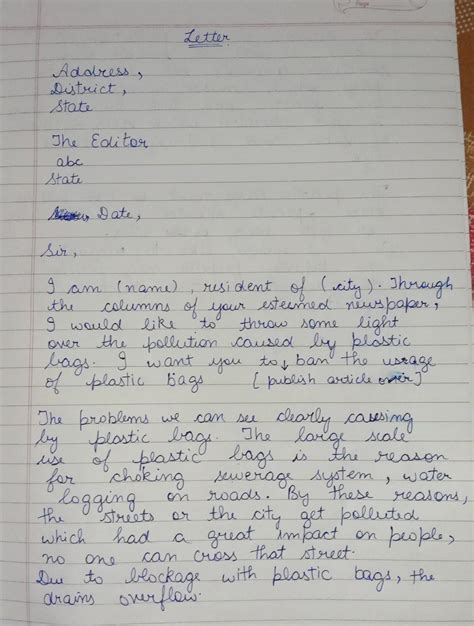 Letter
Address,
District,
State
The Editor
abc
State
Date,
Sir,
I am (name), resident of (city). Through
the columns of your esteemed newspaper,
I would like to throw some light
over the pollution caused by plastic
bags. I want you to ↓ ban the usage
of plastic bags [publish article over]
The problems we can see clearly causing
by plastic bags. The large scale
use of plastic bags is the reason
for choking sewerage system, water
logging on roads. By these reasons,
the streets or the city get polluted
which had a great impact on people,
no one can cross that street.
Due to blockage with plastic bags, the
drains overflow.